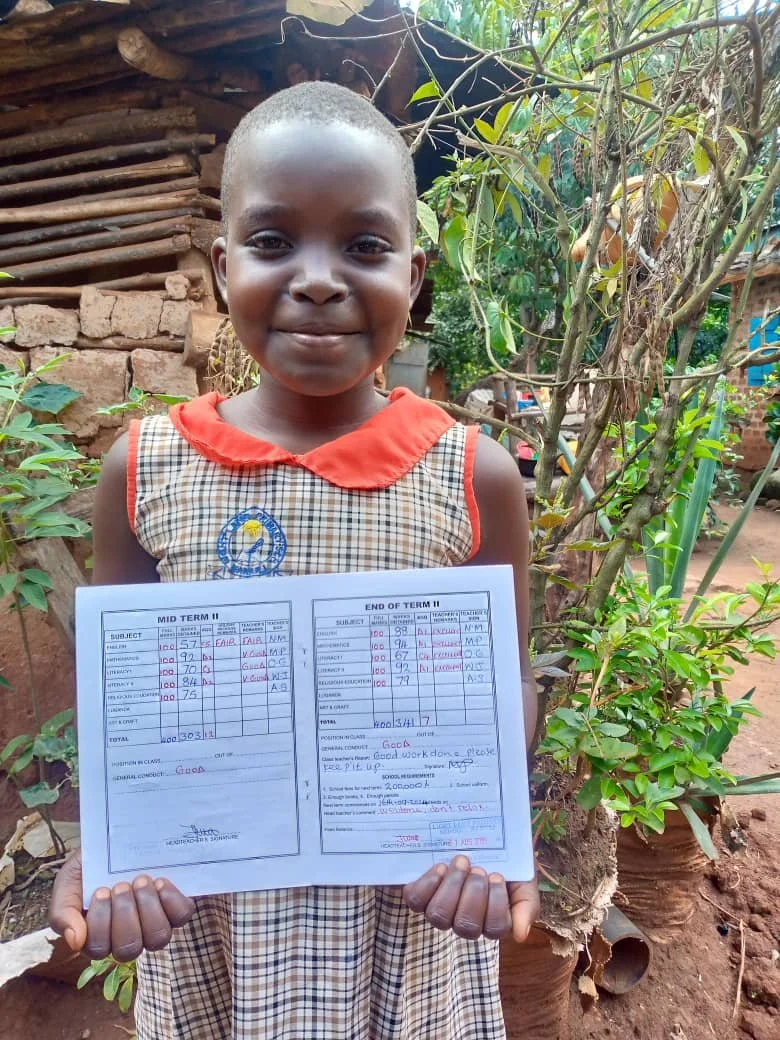 MID TERM II
SUBJECT FULL MARKS MARKS OBTAINED AGG TEACHER'S REMARKS TEACHER'S SIGN
ENGLISH 100 57 FAIR FAIR N.M
MATHEMATICS 100 92 D1 V.GOOD M.P
LITERACY I 100 70 GOOD O.G
LITERACY II 100 84 D2 V.GOOD W.J
RELIGIOUS EDUCATION 100 75 A.S
LUGANDA
ART & CRAFT
TOTAL 400 303 12
POSITION IN CLASS OUT OF
GENERAL CONDUCT: GOOD
HEADTEACHER'S SIGNATURE
END OF TERM II
SUBJECT FULL MARKS MARKS OBTAINED AGG TEACHER'S REMARKS TEACHER'S SIGN
ENGLISH 100 88 N.M
MATHEMATICS 100 94 D1 EXCELLENT M.P
LITERACY I 100 67 O.G
LITERACY II 100 92 D1 EXCELLENT W.J
RELIGIOUS EDUCATION 100 79 A.S
LUGANDA
ART & CRAFT
TOTAL 400 341 7
POSITION IN CLASS OUT OF
GENERAL CONDUCT: GOOD
Class teacher's Report: Good work done please
keep it up. Signature
SCHOOL REQUIREMENTS
1. School fees for next term: 200,000/= 2. School uniform.
3. Enough books, 4. Enough pencils
Next term commences on 16th-09-2024 ends on
Head teacher's comment: Welcome, don't relax.
Fees balance
HEADTEACHER'S SIGNATURE